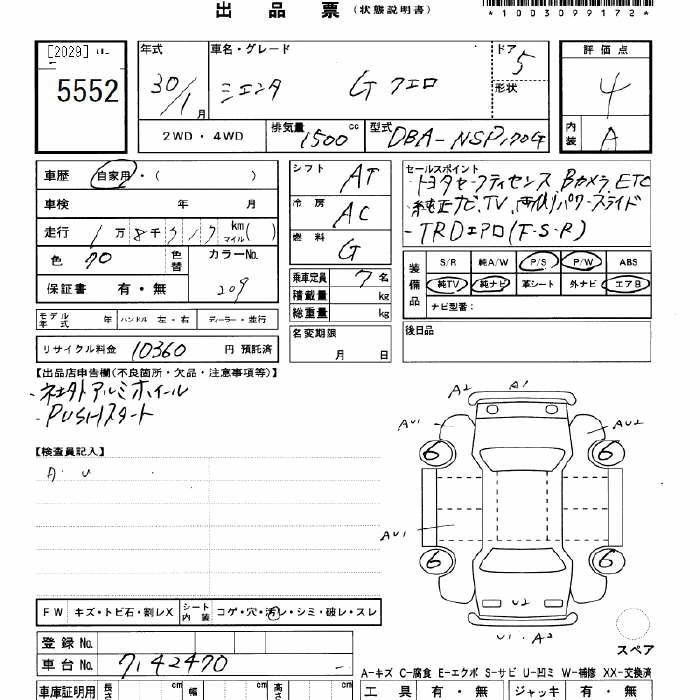 出 品 票 (状態説明書)
*1003099172*
[2029]
5552
年式 30/1月
車名・グレード シエンタ G クエロ
ドア 5
形状
評価点 4
内装 A
2WD・4WD
排気量 1500 cc
型式 DBA-NSP170G
車歴 自家用・( )
車検 年 月
走行 1万 8千 km マイル( )
色 クロ 色替 カラーNo. 209
保証書 有・無
シフト AT
冷房 AC
燃料 G
乗車定員 7名
積載量 kg
総重量 kg
名変期限 月 日
セールスポイント
・トヨタセーフティセンス、Bカメラ、ETC
・純正ナビ、TV、両側パワースライド
・TRDエアロ(F-S-R)
装備品 S/R 純A/W P/S P/W ABS
純TV 純ナビ 革シート 外ナビ エアB
ナビ型番:
後日品
モデル年式 年 ハンドル 左・右 ディーラー・並行
リサイクル料金 10360 円 預託済
【出品店申告欄(不良箇所・欠品・注意事項等)】
・社外アルミホイール
・PUSHスタート
【検査員記入】
A・U
A2 A1
AU1 AU2
6 6
AU1
6 6
U2
U1・A2
スペア
FW キズ・トビ石・割レX シート内装 コゲ・穴・汚レ・シミ・破レ・スレ
登録No.
車台No. 7142470
A-キズ C-腐食 E-エクボ S-サビ U-凹ミ W-補修 XX-交換済
車庫証明用 長さ cm 幅 cm 高さ cm
工具 有・無 ジャッキ 有・無